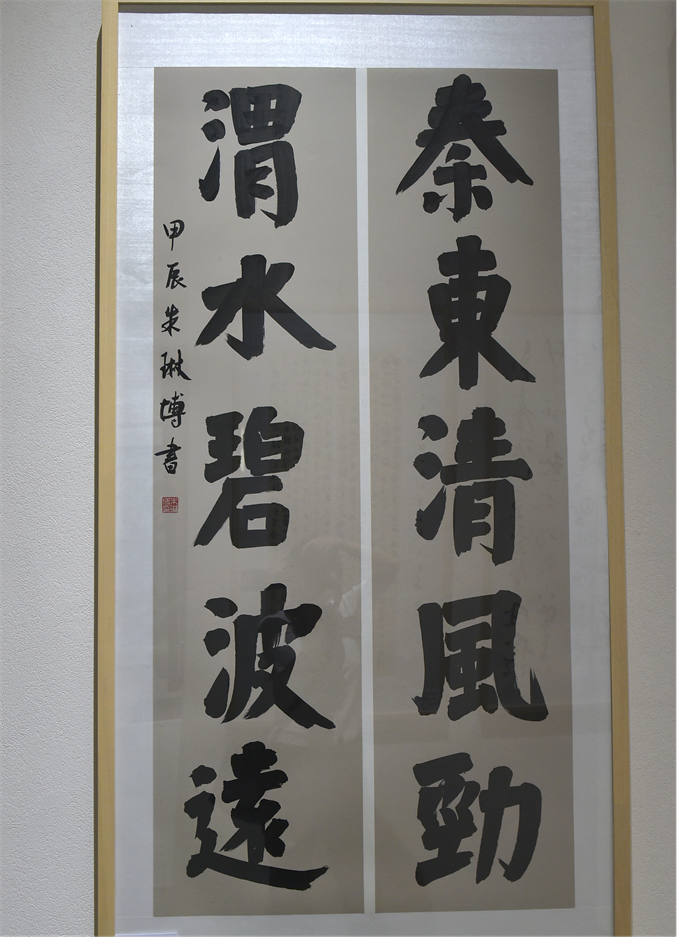 秦東清風勁
渭水碧波遠
甲辰朱琳博書